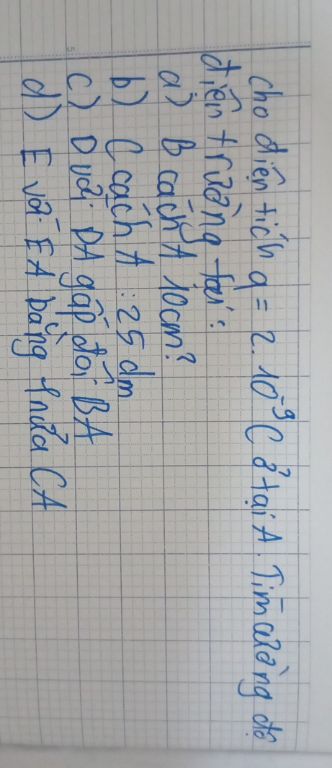 cho điện tích q = 2.10⁻⁹ C ở tại A. Tìm cường độ
điện trường tại:
a) B cách A 10cm?
b) C cách A : 25 dm
c) D với DA gấp đôi BA
d) E với EA bằng 1 nửa CA